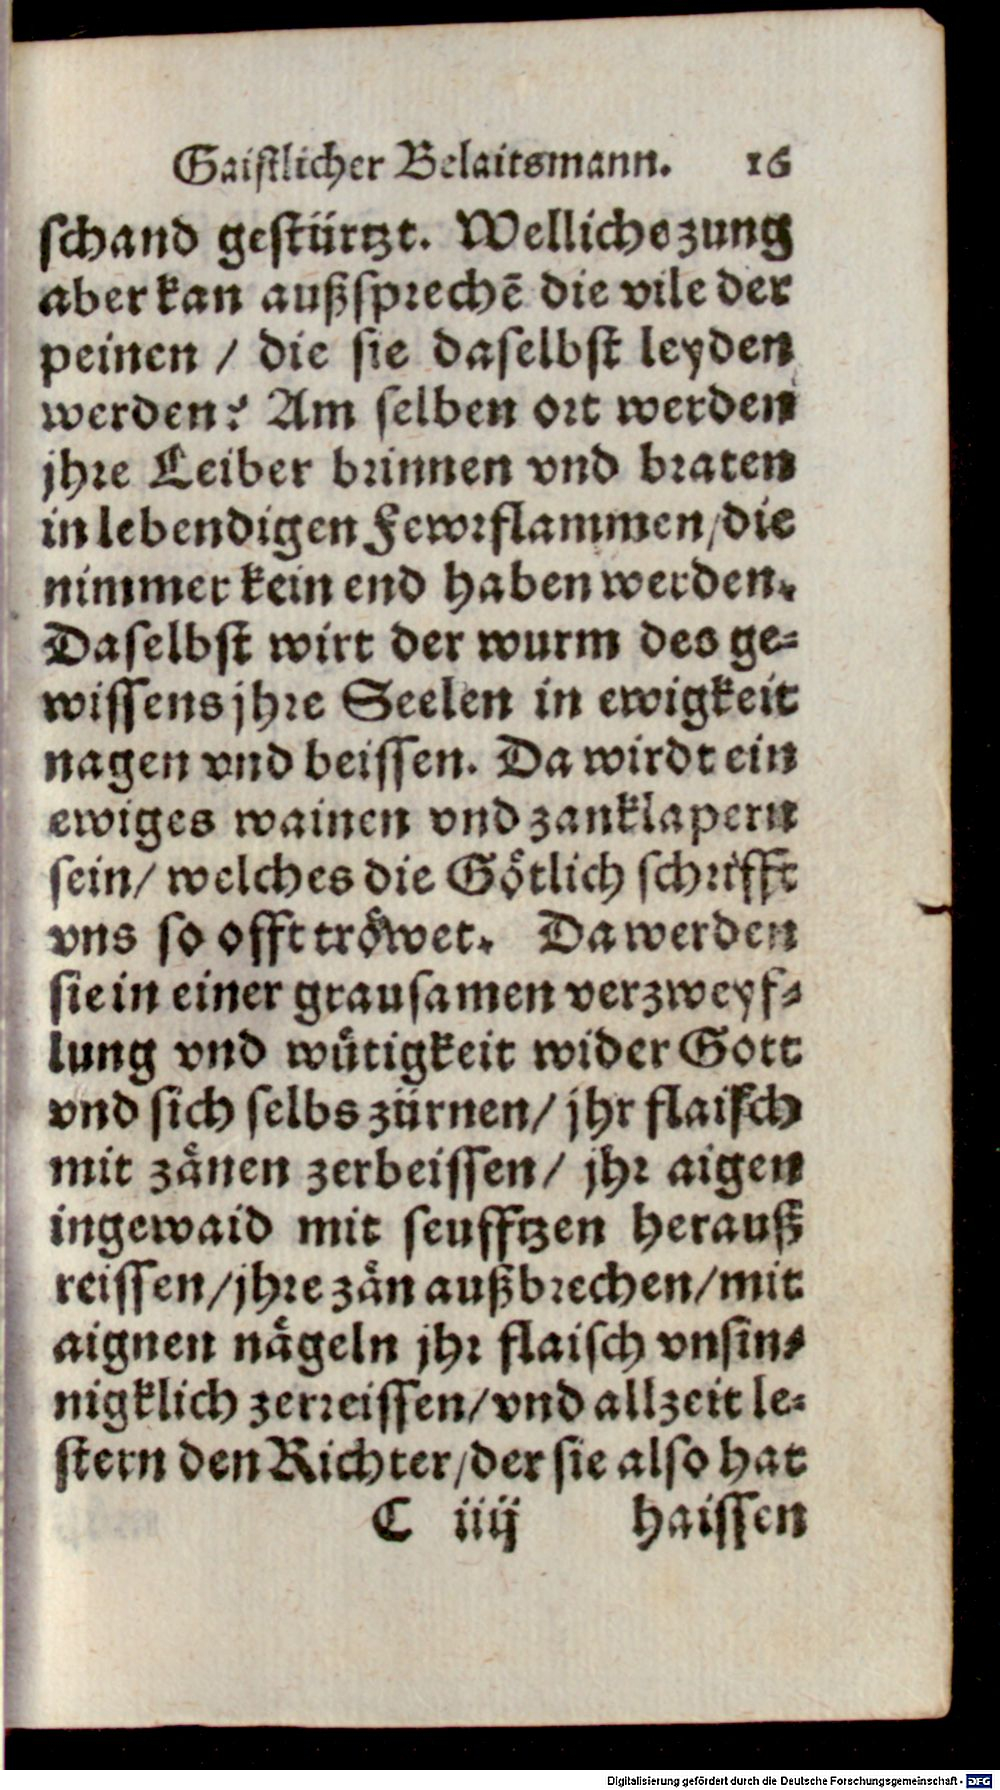 Gaistlicher Belaitsmann. 16
schand gestürtzt. Welliche zung
aber kan außsprechē die vile der
peinen / die sie daselbst leyden
werden? Am selben ort werden
jhre Leiber brinnen vnd braten
in lebendigen Fewrflammen/die
nimmer kein end haben werden.
Daselbst wirt der wurm des ge-
wissens jhre Seelen in ewigkeit
nagen vnd beissen. Da wirdt ein
ewiges wainen vnd zanklapern
sein/ welches die Goͤtlich schrifft
vns so offt troͤwet. Da werden
sie in einer grausamen verzweyf-
lung vnd wuͤtigkeit wider Gott
vnd sich selbs zürnen/ jhr flaisch
mit zaͤnen zerbeissen/ jhr aigen
ingewaid mit seufftzen herauß
reissen/jhre zaͤn außbrechen/mit
aignen naͤgeln jhr flaisch vnsin-
nigklich zerreissen/vnd allzeit le-
stern den Richter/der sie also hat
C iiij haissen
Digitalisierung gefördert durch die Deutsche Forschungsgemeinschaft - DFG